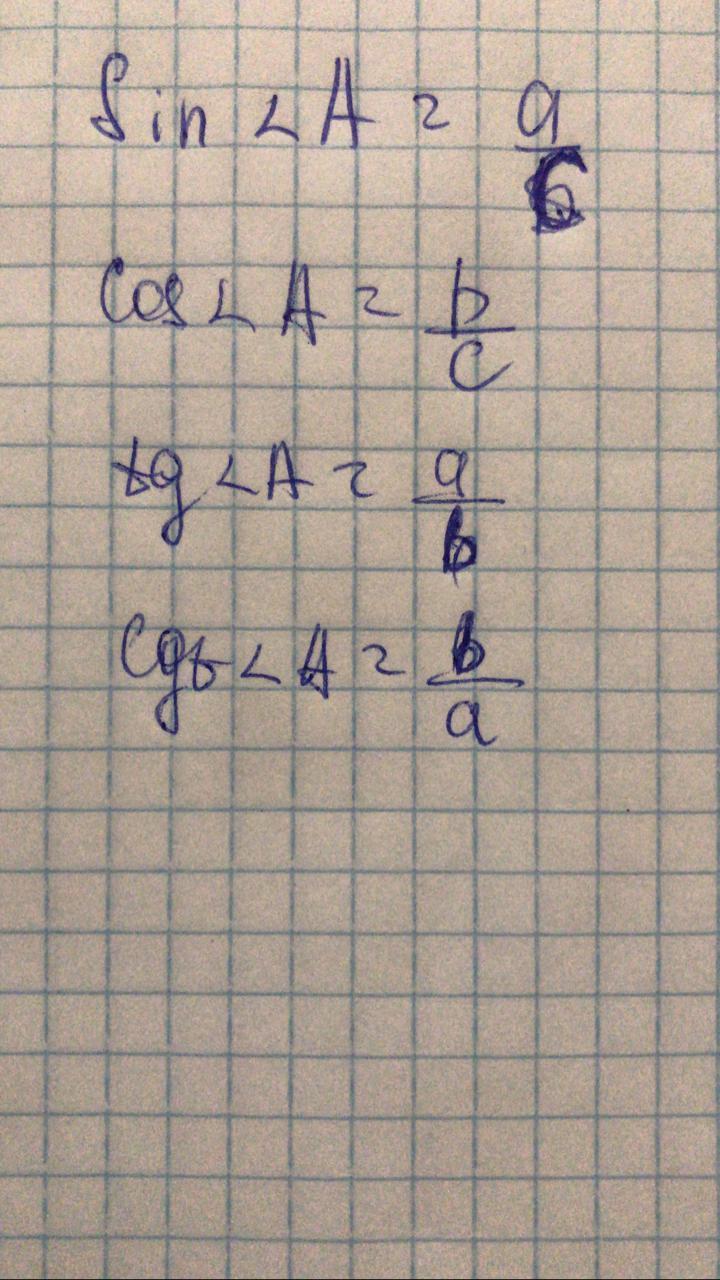 Sin ∠A = a/c
Cos ∠A = b/c
tg ∠A = a/b
Cgt ∠A = b/a